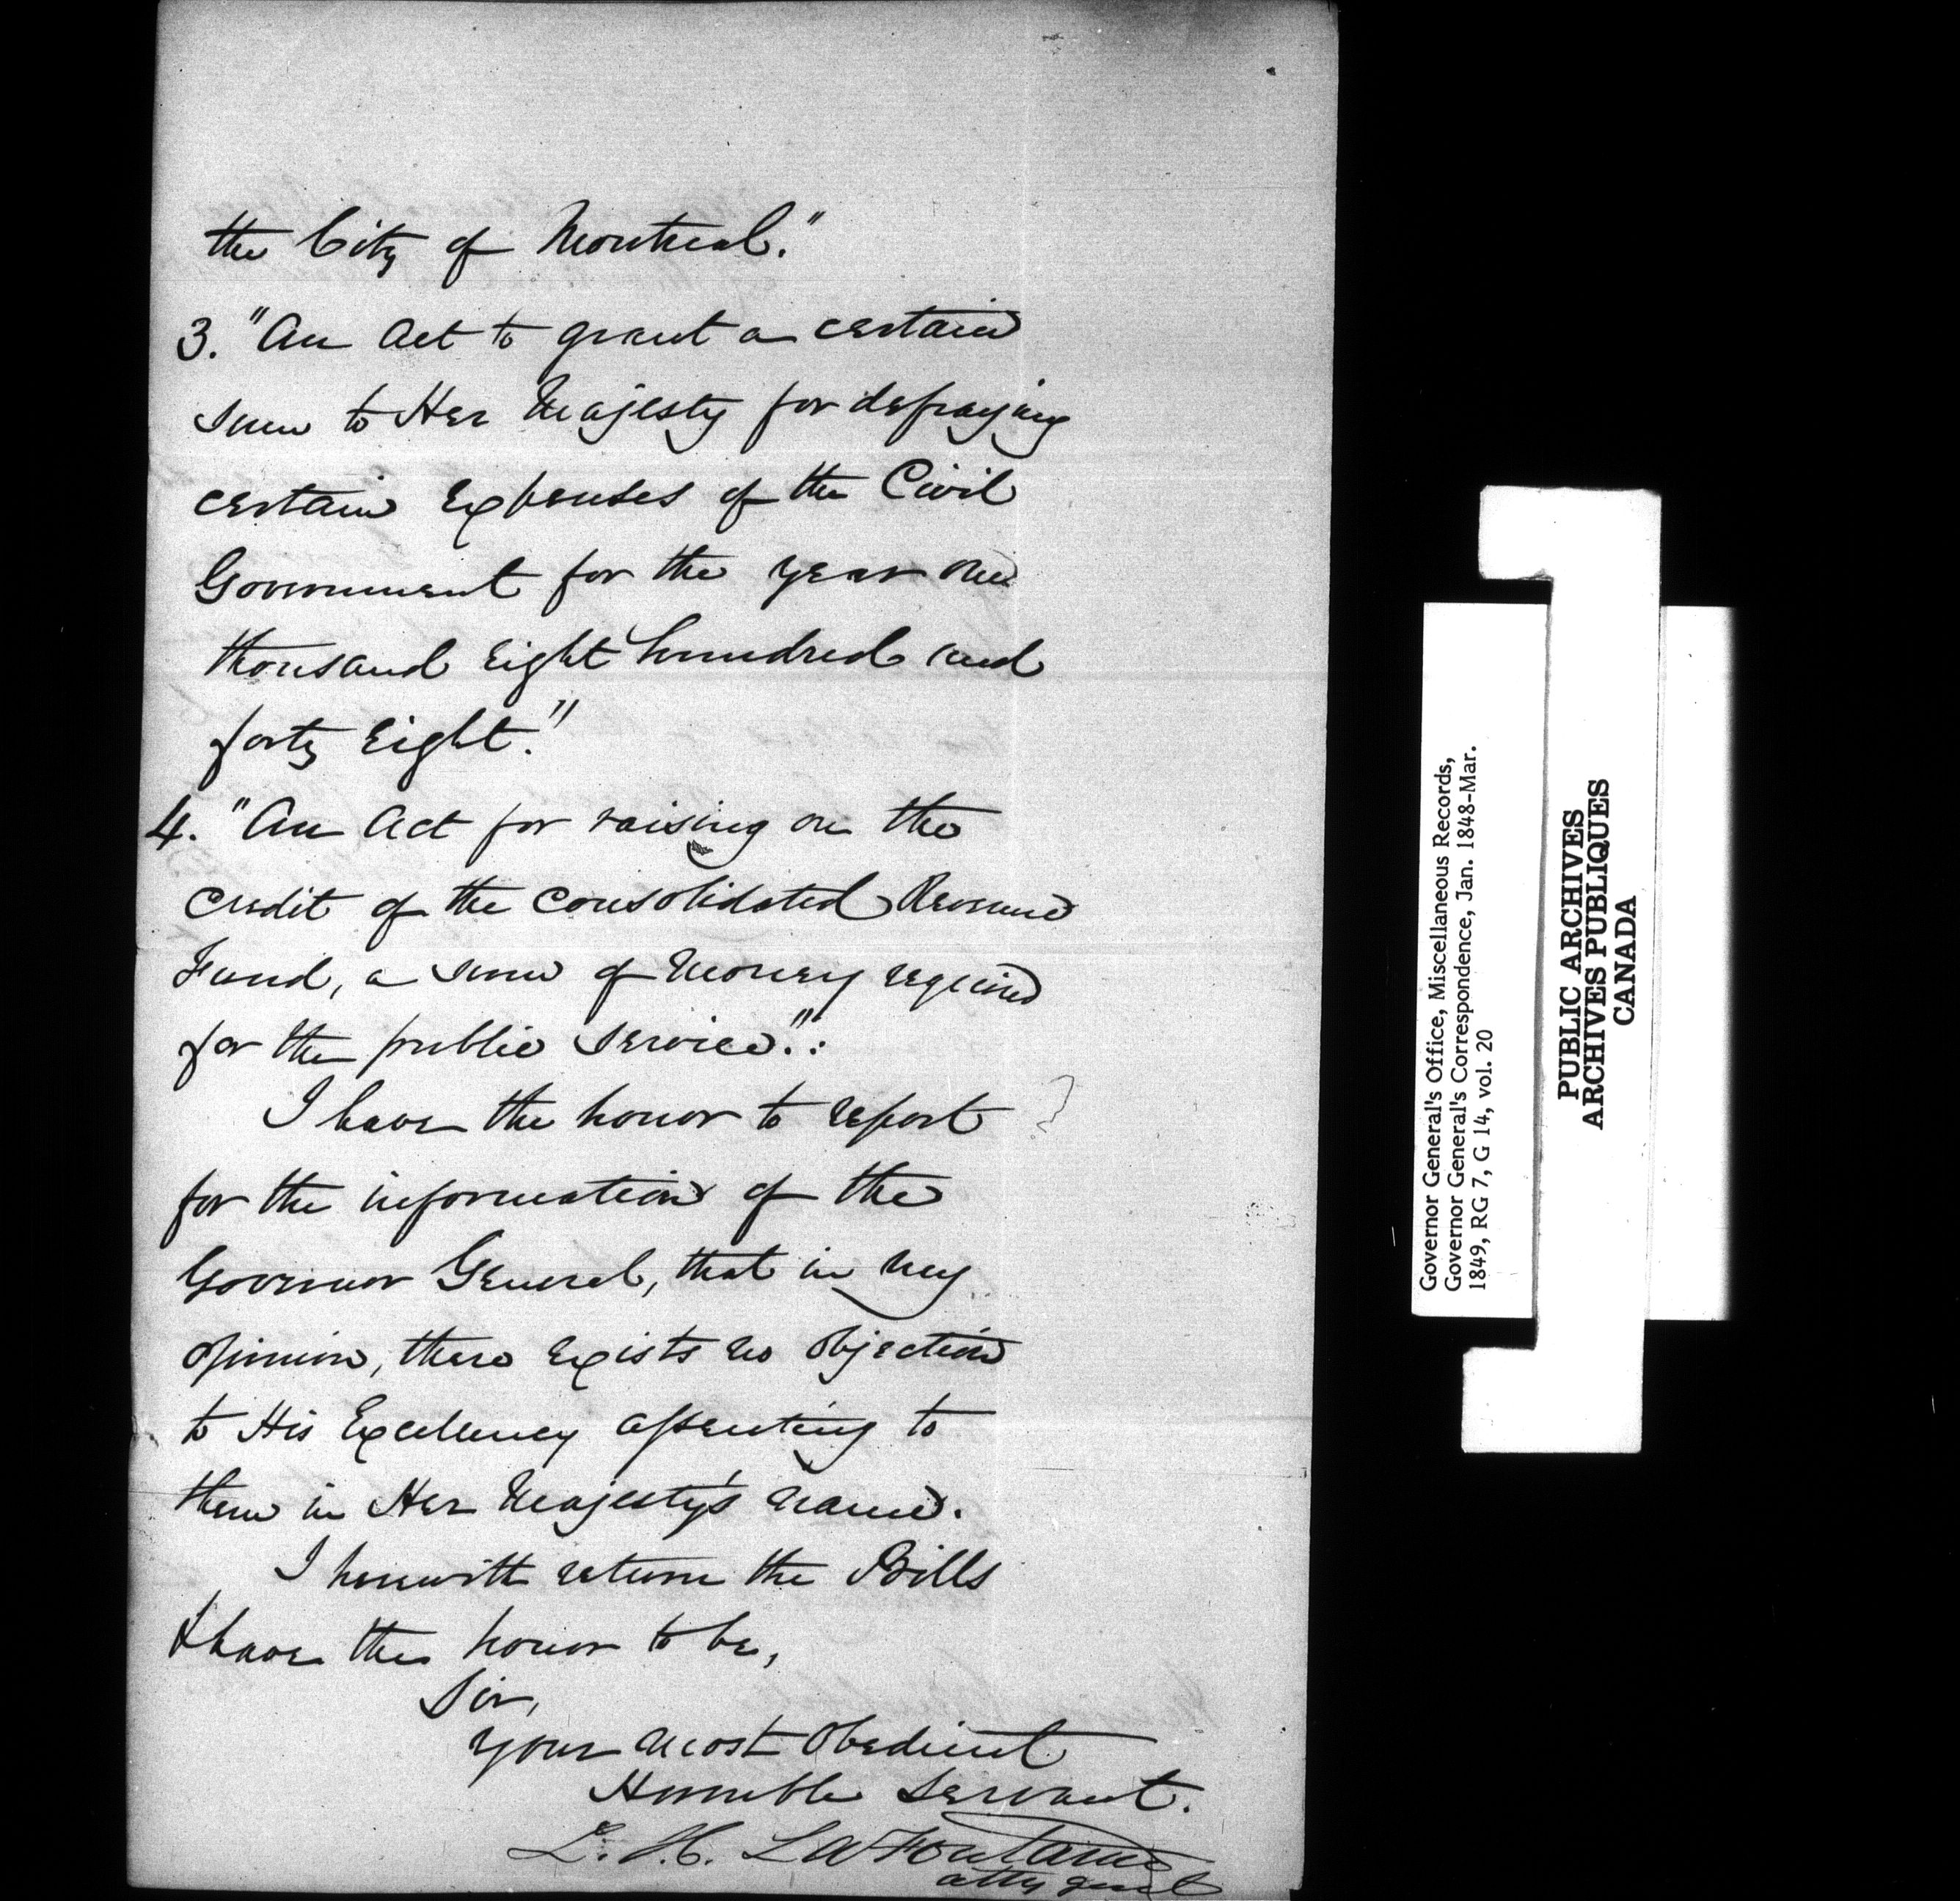 the City of Montreal."
3. "An Act to grant a certain
sum to Her Majesty for defraying
certain Expenses of the Civil
Government for the year one
thousand Eight hundred and
forty Eight."
4. "An Act for raising on the
credit of the Consolidated Revenue
Fund, a sum of Money required
for the public service.":
I have the honor to report
for the information of the
Governor General, that in my
opinion, there exists no objection
to His Excellency assenting to
them in Her Majesty's name.
I herewith return the Bills
I have the honor to be,
Sir,
Your Most Obedient
Humble Servant.
L. H. LaFontaine
atty genl
Governor General's Office, Miscellaneous Records,
Governor General's Correspondence, Jan. 1848-Mar.
1849, RG 7, G 14, vol. 20
PUBLIC ARCHIVES
ARCHIVES PUBLIQUES
CANADA